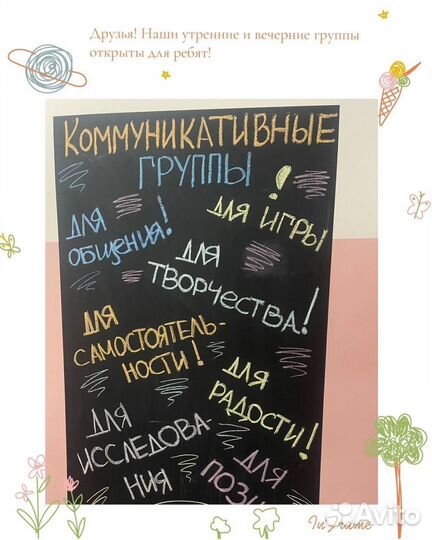 Друзья! Наши утренние и вечерние группы
открыты для ребят!
КОММУНИКАТИВНЫЕ
ГРУППЫ!
ДЛЯ
ОБЩЕНИЯ!
ДЛЯ ИГРЫ
ДЛЯ
ТВОРЧЕСТВА!
ДЛЯ
САМОСТОЯТЕЛЬ-
НОСТИ!
ДЛЯ
РАДОСТИ!
ДЛЯ
ИССЛЕДОВА-
НИЯ
ДЛЯ
ПОЗИ
In Frame
Avito